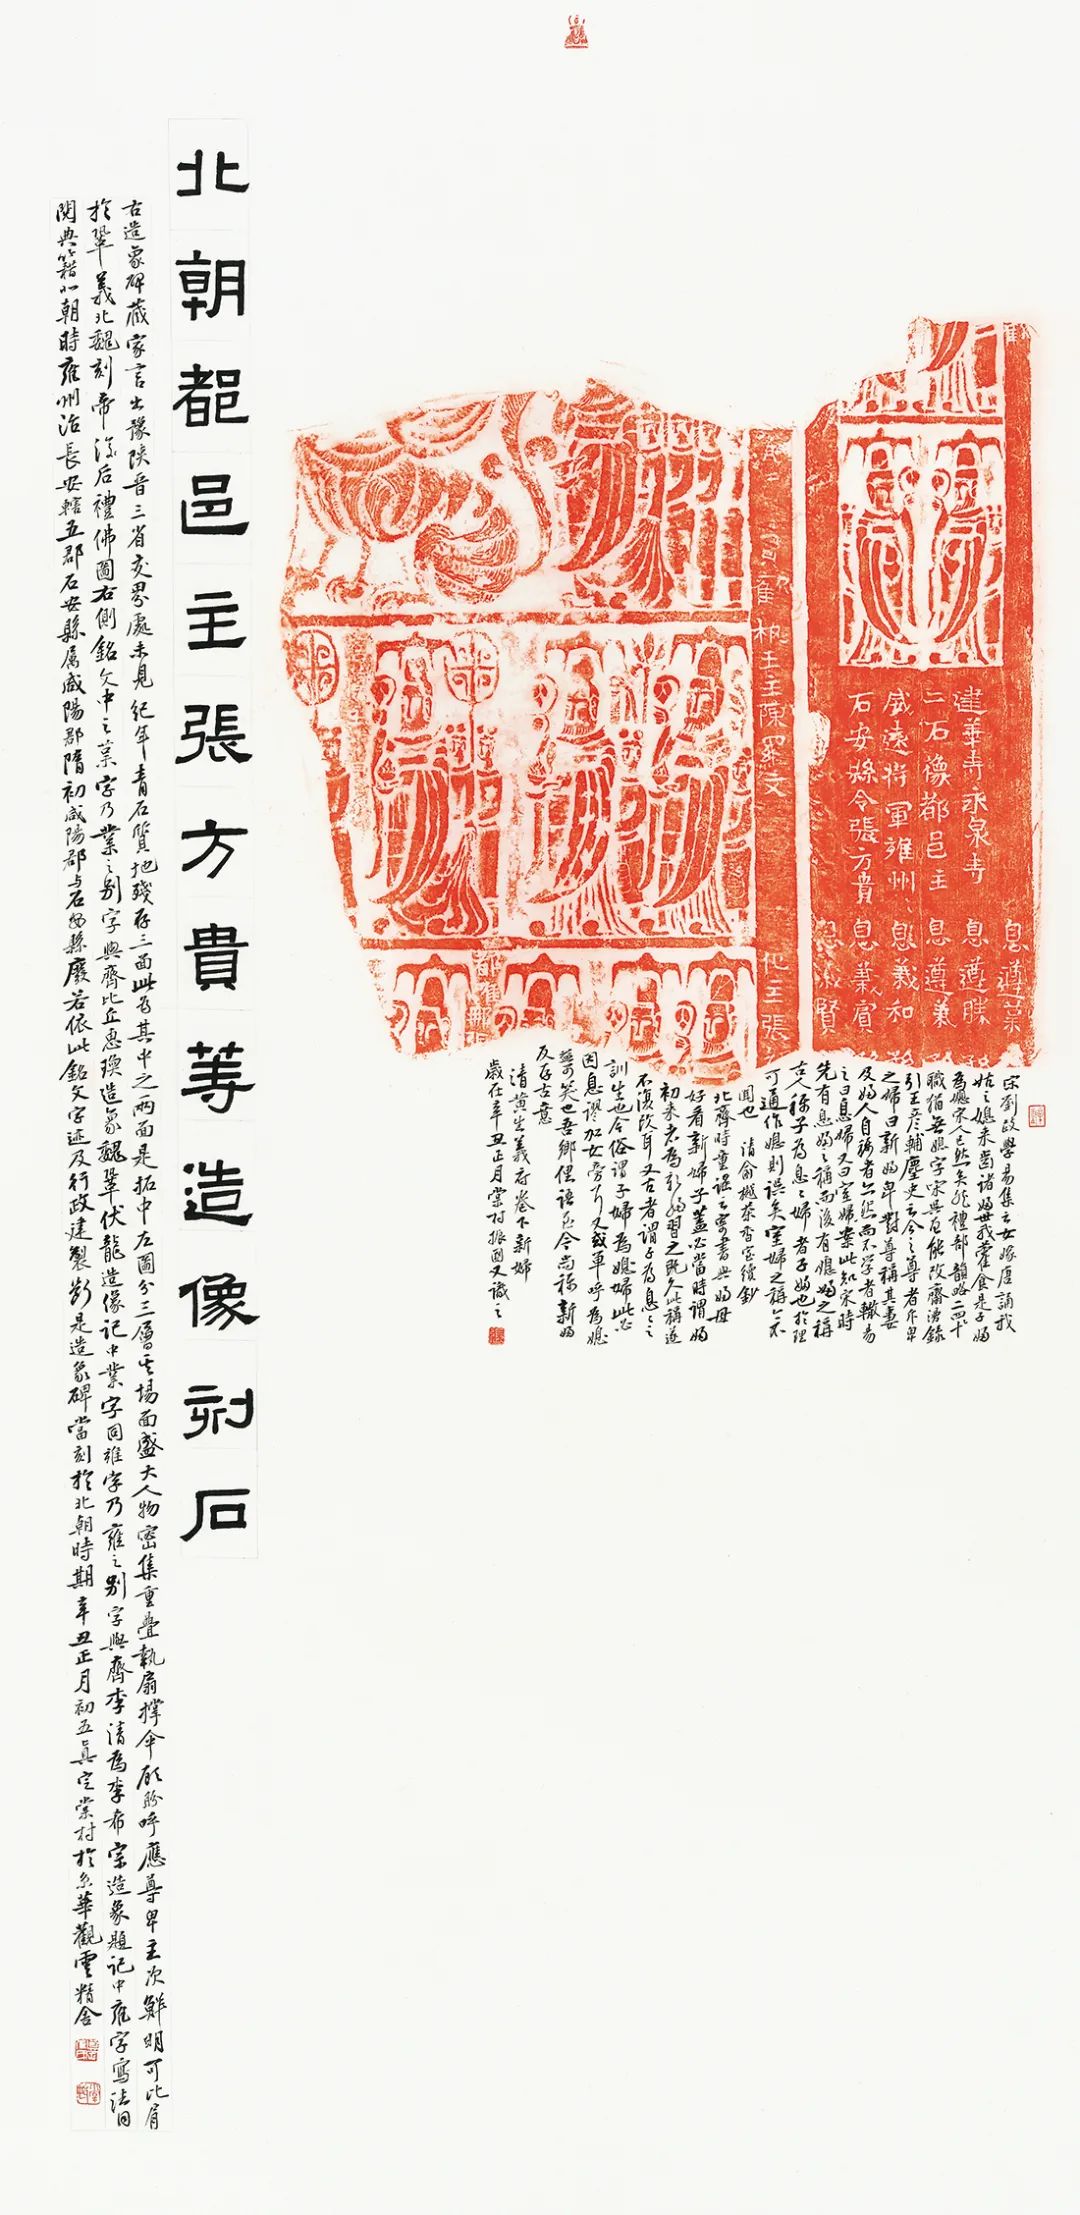 北朝都邑主張方貴等造像刻石
古造象碑藏家言出豫陝晉三省交界處未見紀年青石質地殘存三面此爲其中之兩面是拓中左圖分三層其場面盛大人物密集重疊執扇撐傘顧盼呼應尊卑主次鮮明可比肩
於鞏義北魏刻帝后禮佛圖右側銘文中之葉字乃業之别字與齊比丘惠瑍造象魏鞏伏龍造像記中業字同雍字乃雍之别字與齊李清爲李希宗造象題記中雍字寫法同
閱典籍北朝時雍州治長安轄五郡石安縣屬咸陽郡隋初咸陽郡与石安縣廢若依此銘文字迹及行政建製斷是造象碑當刻於北朝時期辛丑正月初五眞定棠村於京華觀雲精舍
息遵業
建華寺永泉寺 息遵勝
二石像都邑主 息遵兼
威遠將軍雍州 息義和
石安縣令張方貴 息兼賓
息 賢
像主主陳羅文 化主張
宋劉跂學易集云女嫁唐誦我
姑之媳来齒諸婦世我藿食是子婦
爲媳宋人已然矣然禮部韻略二四十
職猶無媳字宋吳曾能改齋漫録
引王彦輔麈史云今之尊者斥卑
之婦曰新婦卑對尊稱其妻
及婦人自稱者亦然而不学者輒易
之曰息婦又曰室婦案此知宋時
先有息婦之稱而後有媳婦之稱
古人稱子爲息息婦者子婦也於理
可通作媳則誤矣室婦之稱今不
聞也 清俞樾茶香室續鈔
北齊時童謡云寄書與婦母
好看新婦子蓋必當時謂婦
初来者爲新婦習之既久此稱遂
不復改耳又古者謂子爲息息之
訓生也今俗謂子婦爲媳婦此必
因息謬加女旁耳又或單呼爲媳
甚可笑也吾鄉俚語至今尚稱新婦
反存古意
清黄生義府卷下新婦
歲在辛丑正月棠村振國又識之